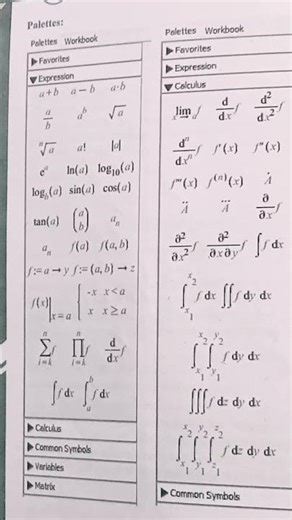 Palettes:
Palettes Workbook
▶ Favorites
▼ Expression
a+b a−b a·b
a/b a^b √a
ⁿ√a a! |a|
e^a ln(a) log₁₀(a)
log_b(a) sin(a) cos(a)
tan(a) (a b) a_n
a_n f(a) f(a, b)
f := a → y f := (a, b) → z
f(x)|_{x = a} { -x x < a
x x ≥ a
∑_{i=k}^{n} f ∏_{i=k}^{n} f d/dx f
∫ f dx ∫_a^b f dx
▶ Calculus
▶ Common Symbols
▶ Variables
▶ Matrix
Palettes Workbook
▶ Favorites
▶ Expression
▼ Calculus
lim_{x→a} f d/dx f d²/dx² f
dⁿ/dxⁿ f f′(x) f″(x)
f‴(x) f⁽ⁿ⁾(x) Ȧ
Ä A⃛ ∂/∂x f
∂²/∂x² f ∂²/∂x∂y f ∫ f dx
∫_{x₁}^{x₂} f dx ∬ f dy dx
∫_{x₁}^{x₂} ∫_{y₁}^{y₂} f dy dx
∭ f dz dy dx
∫_{x₁}^{x₂} ∫_{y₁}^{y₂} ∫_{z₁}^{z₂} f dz dy dx
▶ Common Symbols